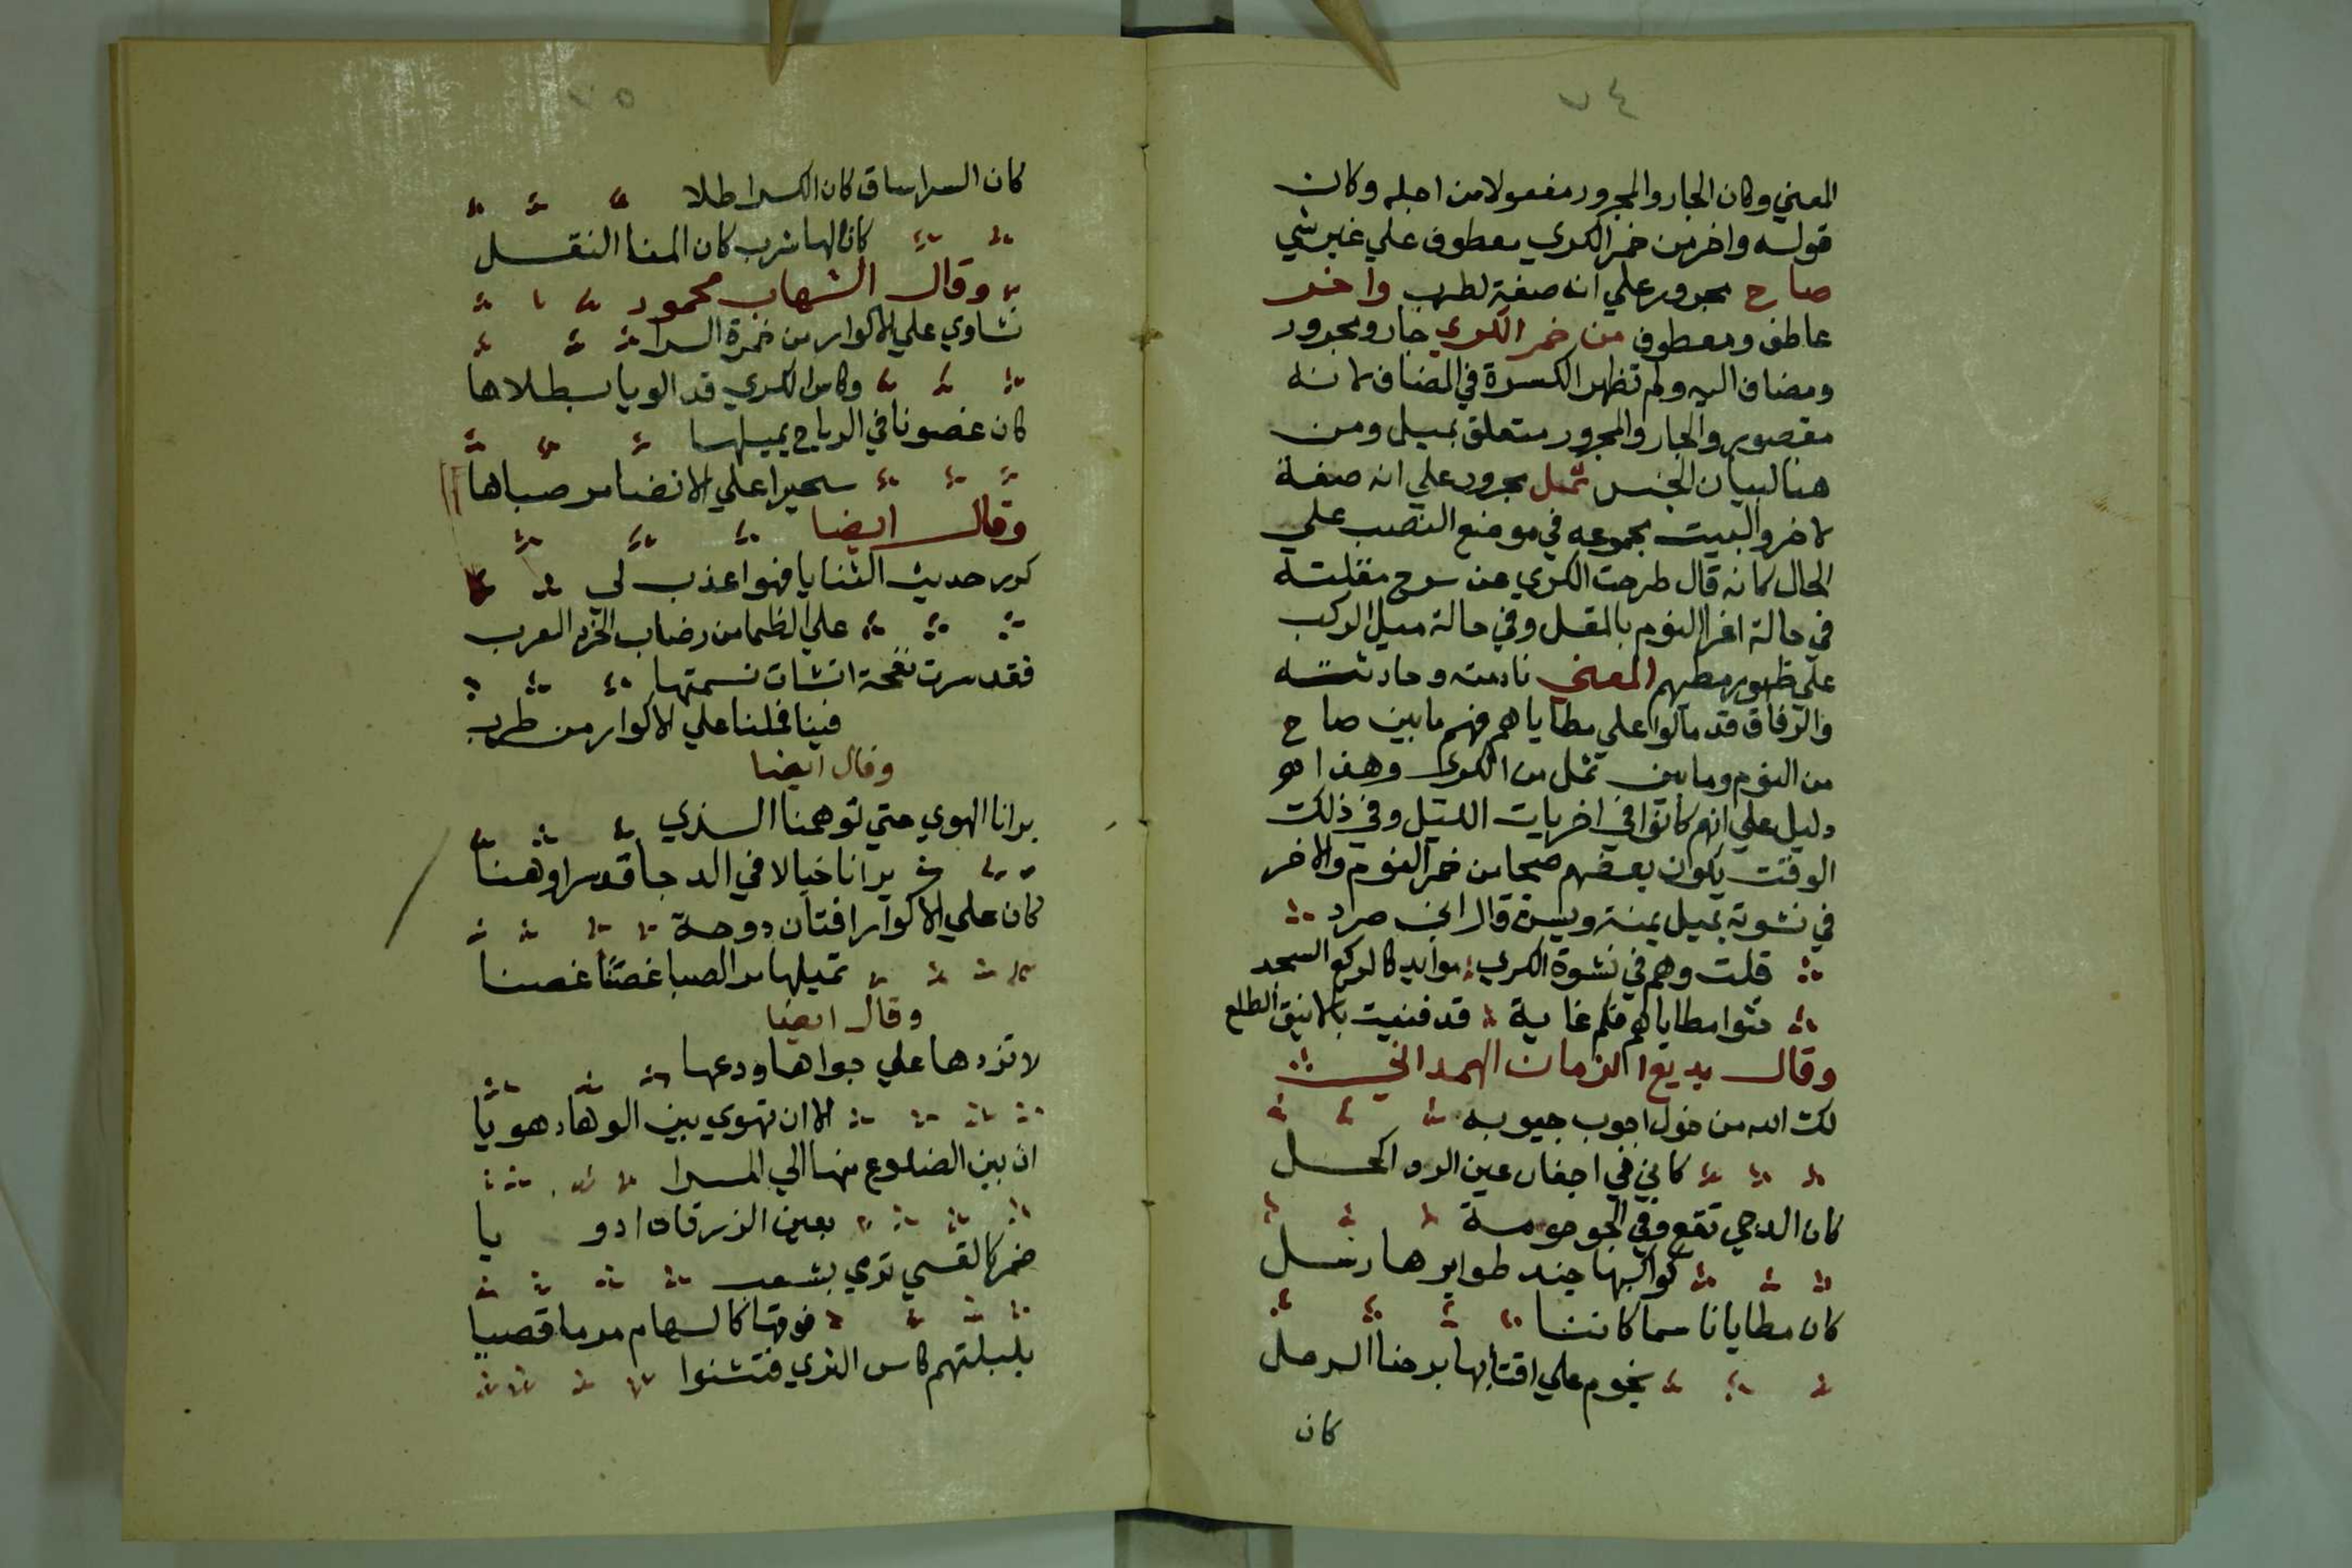 ٧٤
المعني وكان الجار والمجرور مفعولا من اجله وكان
قوله واخر من خمر الكري معطوف علي غير شي
صاح مجرور علي انه صفة لطرب واخر
عاطف ومعطوف من خمر الكري جار ومجرور
ومضاف اليه ولم تظهر الكسرة في المضاف لانه
مقصور والجار والمجرور متعلق بميل ومن
هنا لبيان الجنس ثمل مجرور علي انه صفة
لاخر والبيت بمجموعه في موضع النصب علي
الحال كانه قال طرحت الكري عن سرح مقلته
في حالة اغرا النوم بالمقل وفي حالة ميل الركب
علي ظهور مطيهم المعني نادمته وحادثته
والرفاق قد مالوا علي مطاياهم فهم ما بين صاح
من النوم وما بين ثمل من الكري وهذا هو
دليل علي انهم كانوا في اخريات الليل وفي ذلك
الوقت يكون بعضهم صحا من خمر النوم والاخر
في نشوته يميل يمنة ويسرة قال ابن صرد
قلت وهم في نشوة الكري موايد كالركع السجد
حثوا مطاياكم فكم غاية قد فنيت بالانيق الطلع
وقال بديع الزمان الهمداني
لك الله من خول اجوب جيوبه
كاني في اجفان عين الردا كحل
كان الدجي نقع وفي الجو حومة
كواكبها جند طوايرها رسل
كان مطايانا سما كاننا
نجوم علي اقتابها برحنا الرحل
كان
٧٥
كان السرا ساق كان الكرا طلا
كانا لها شرب كان المنا النقل
وقال الشهاب محمود
نشاوي علي الاكوار من خمرة السرا
وكاس الكري قد الويا بسطلاها
كان غصونا في الرياح يميلها
سحيرا علي الانضا مر صباها
وقال ايضا
كرر حديث الثنايا فهو اعذب لي
علي الظما من رضاب الخرد العرب
فقد سرت نفحة انشات نسمتها
فينا فملنا علي الاكوار من طرب
وقال ايضا
برانا الهوي حتي توهمنا الذي
يرانا خيالا في الدجا قد سرا وهنا
كان علي الاكوار افنان دوحة
تميلها مر الصبا غصنا غصنا
وقال ايضا
لا تزدها علي جواها ودعها
الا ان تهوي بين الوهاد هويا
ان بين الضلوع منها الي المسرا
بعين الزرقان ادويا
ضمر كالقسي تري بشعب
فوقها كالسهام مرما قصيا
بلبلتهم كاس الكري فتثنوا